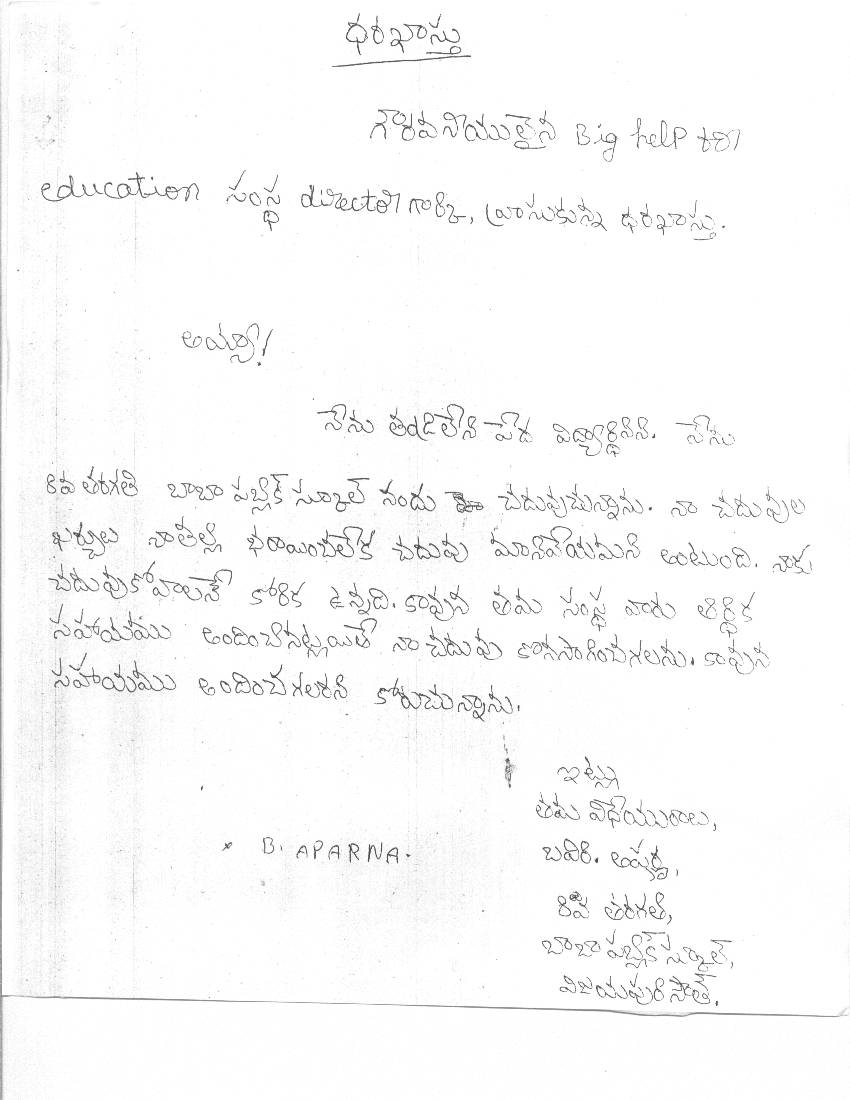 ధరఖాస్తు
గౌరవనీయులైన Big help for
education సంస్థ director గార్కి, వ్రాసుకున్న ధరఖాస్తు.
అయ్యా!
నేను తండ్రిలేని పేద విద్యార్థినిని. నేను
8వ తరగతి బాబా పబ్లిక్ స్కూల్ నందు చదువుచున్నాను. నా చదువుల
ఖర్చులు నాతల్లి భరాయించలేక చదువు మానివేయమని అంటుంది. నాకు
చదువుకోవాలనే కోరిక ఉన్నది. కావున తమ సంస్థ వారు ఆర్థిక
సహాయము అందించినట్లయితే నా చదువు కొనసాగించగలను. కావున
సహాయము అందించగలరని కోరుచున్నాను.
ఇట్లు
తమ విధేయురాలు,
B. APARNA.
బవిరి. అపర్ణ,
8వ తరగతి,
బాబా పబ్లిక్ స్కూల్,
విజయపురిసౌత్.